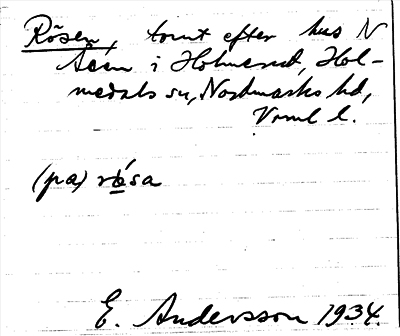 Rösen, tomt efter hus N
Åsen i Holmerud, Hol-
medals sn, Nordmarks hd,
Vrml l.
(pa) rösa
E. Andersson 1934.